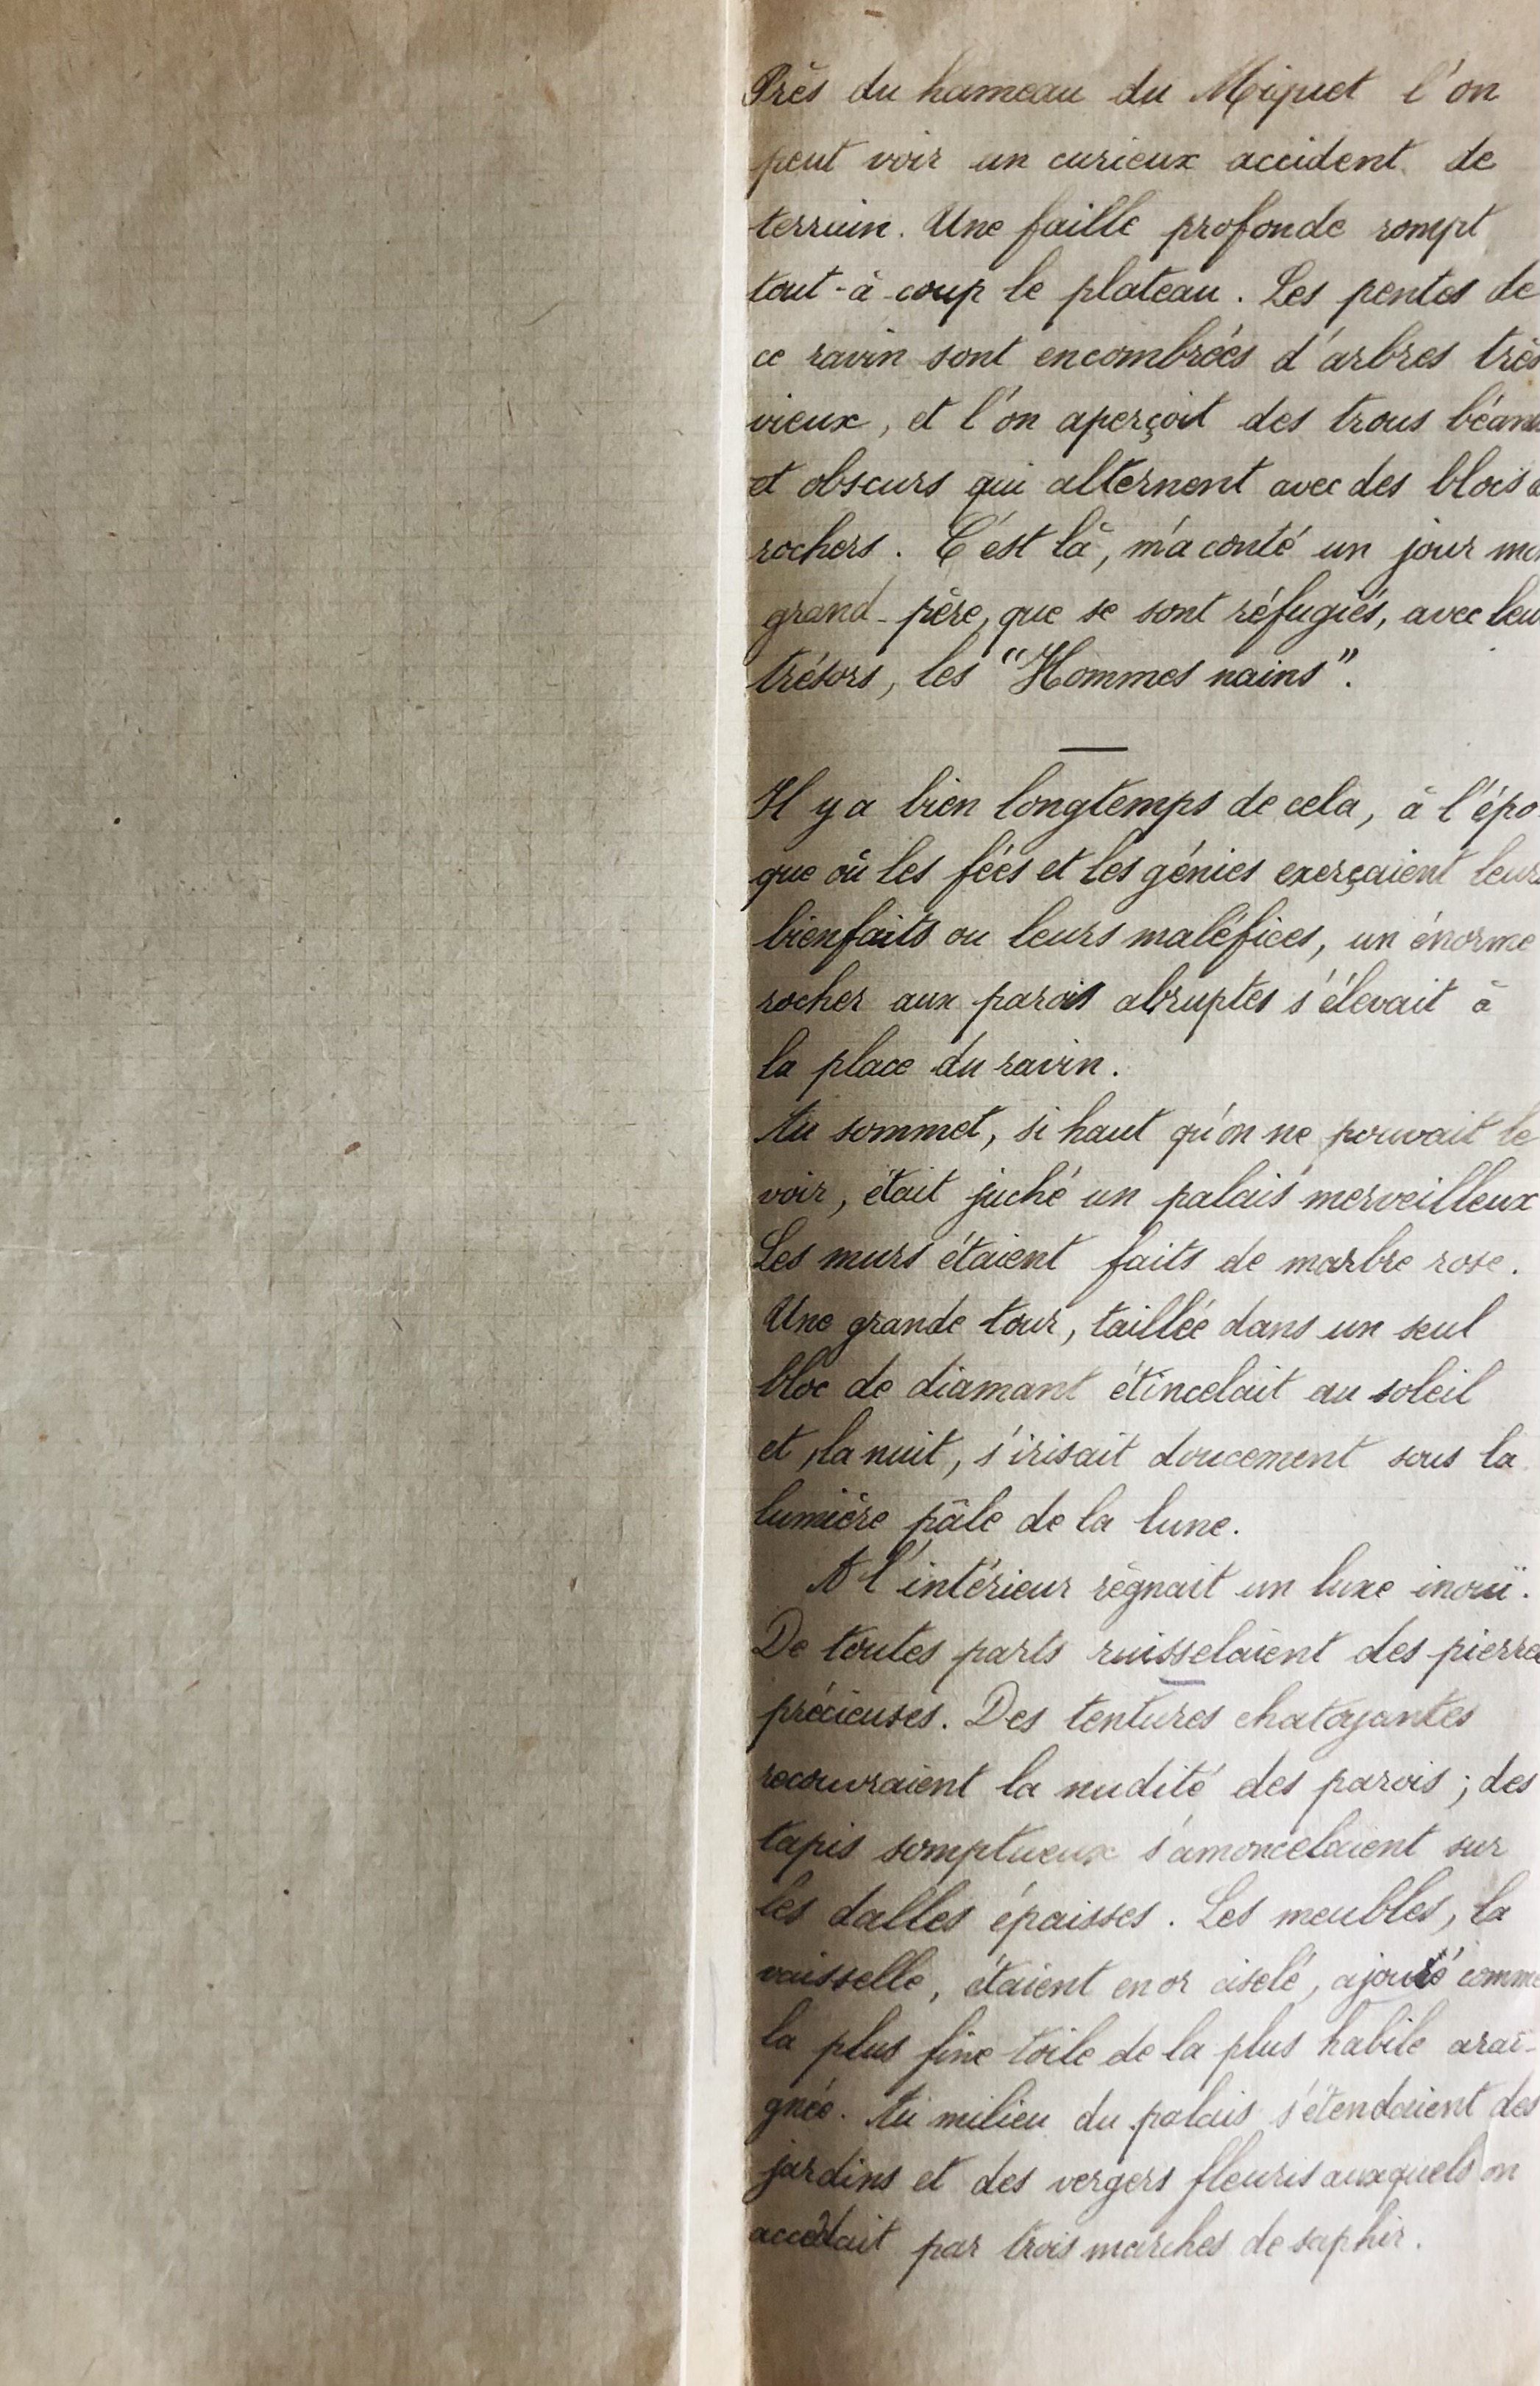 Près du hameau du Miquet l'on
peut voir un curieux accident de
terrain. Une faille profonde rompt
tout-à-coup le plateau. Les pentes de
ce ravin sont encombrées d'arbres très
vieux, et l'on aperçoit des trous béan
et obscurs qui alternent avec des blocs
rochers. C'est là, m'a conté un jour mo
grand-père, que se sont réfugiés, avec leu
trésors, les "Hommes nains".
Il y a bien longtemps de cela, à l'épo-
que où les fées et les génies exerçaient leurs
bienfaits ou leurs maléfices, un énorme
rocher aux parois abruptes s'élevait à
la place du ravin.
Au sommet, si haut qu'on ne pouvait le
voir, était juché un palais merveilleux
Les murs étaient faits de marbre rose.
Une grande tour, taillée dans un seul
bloc de diamant étincelait au soleil
et, la nuit, s'irisait doucement sous la
lumière pâle de la lune.
A l'intérieur règnait un luxe inouï.
De toutes parts ruisselaient des pierres
précieuses. Des tentures chatoyantes
recouvraient la nudité des parois ; des
tapis somptueux s'amoncelaient sur
les dalles épaisses. Les meubles, la
vaisselle, étaient en or ciselé, ajouré comme
la plus fine toile de la plus habile arai-
gnée. Au milieu du palais s'étendaient des
jardins et des vergers fleuris auxquels on
accédait par trois marches de saphir.